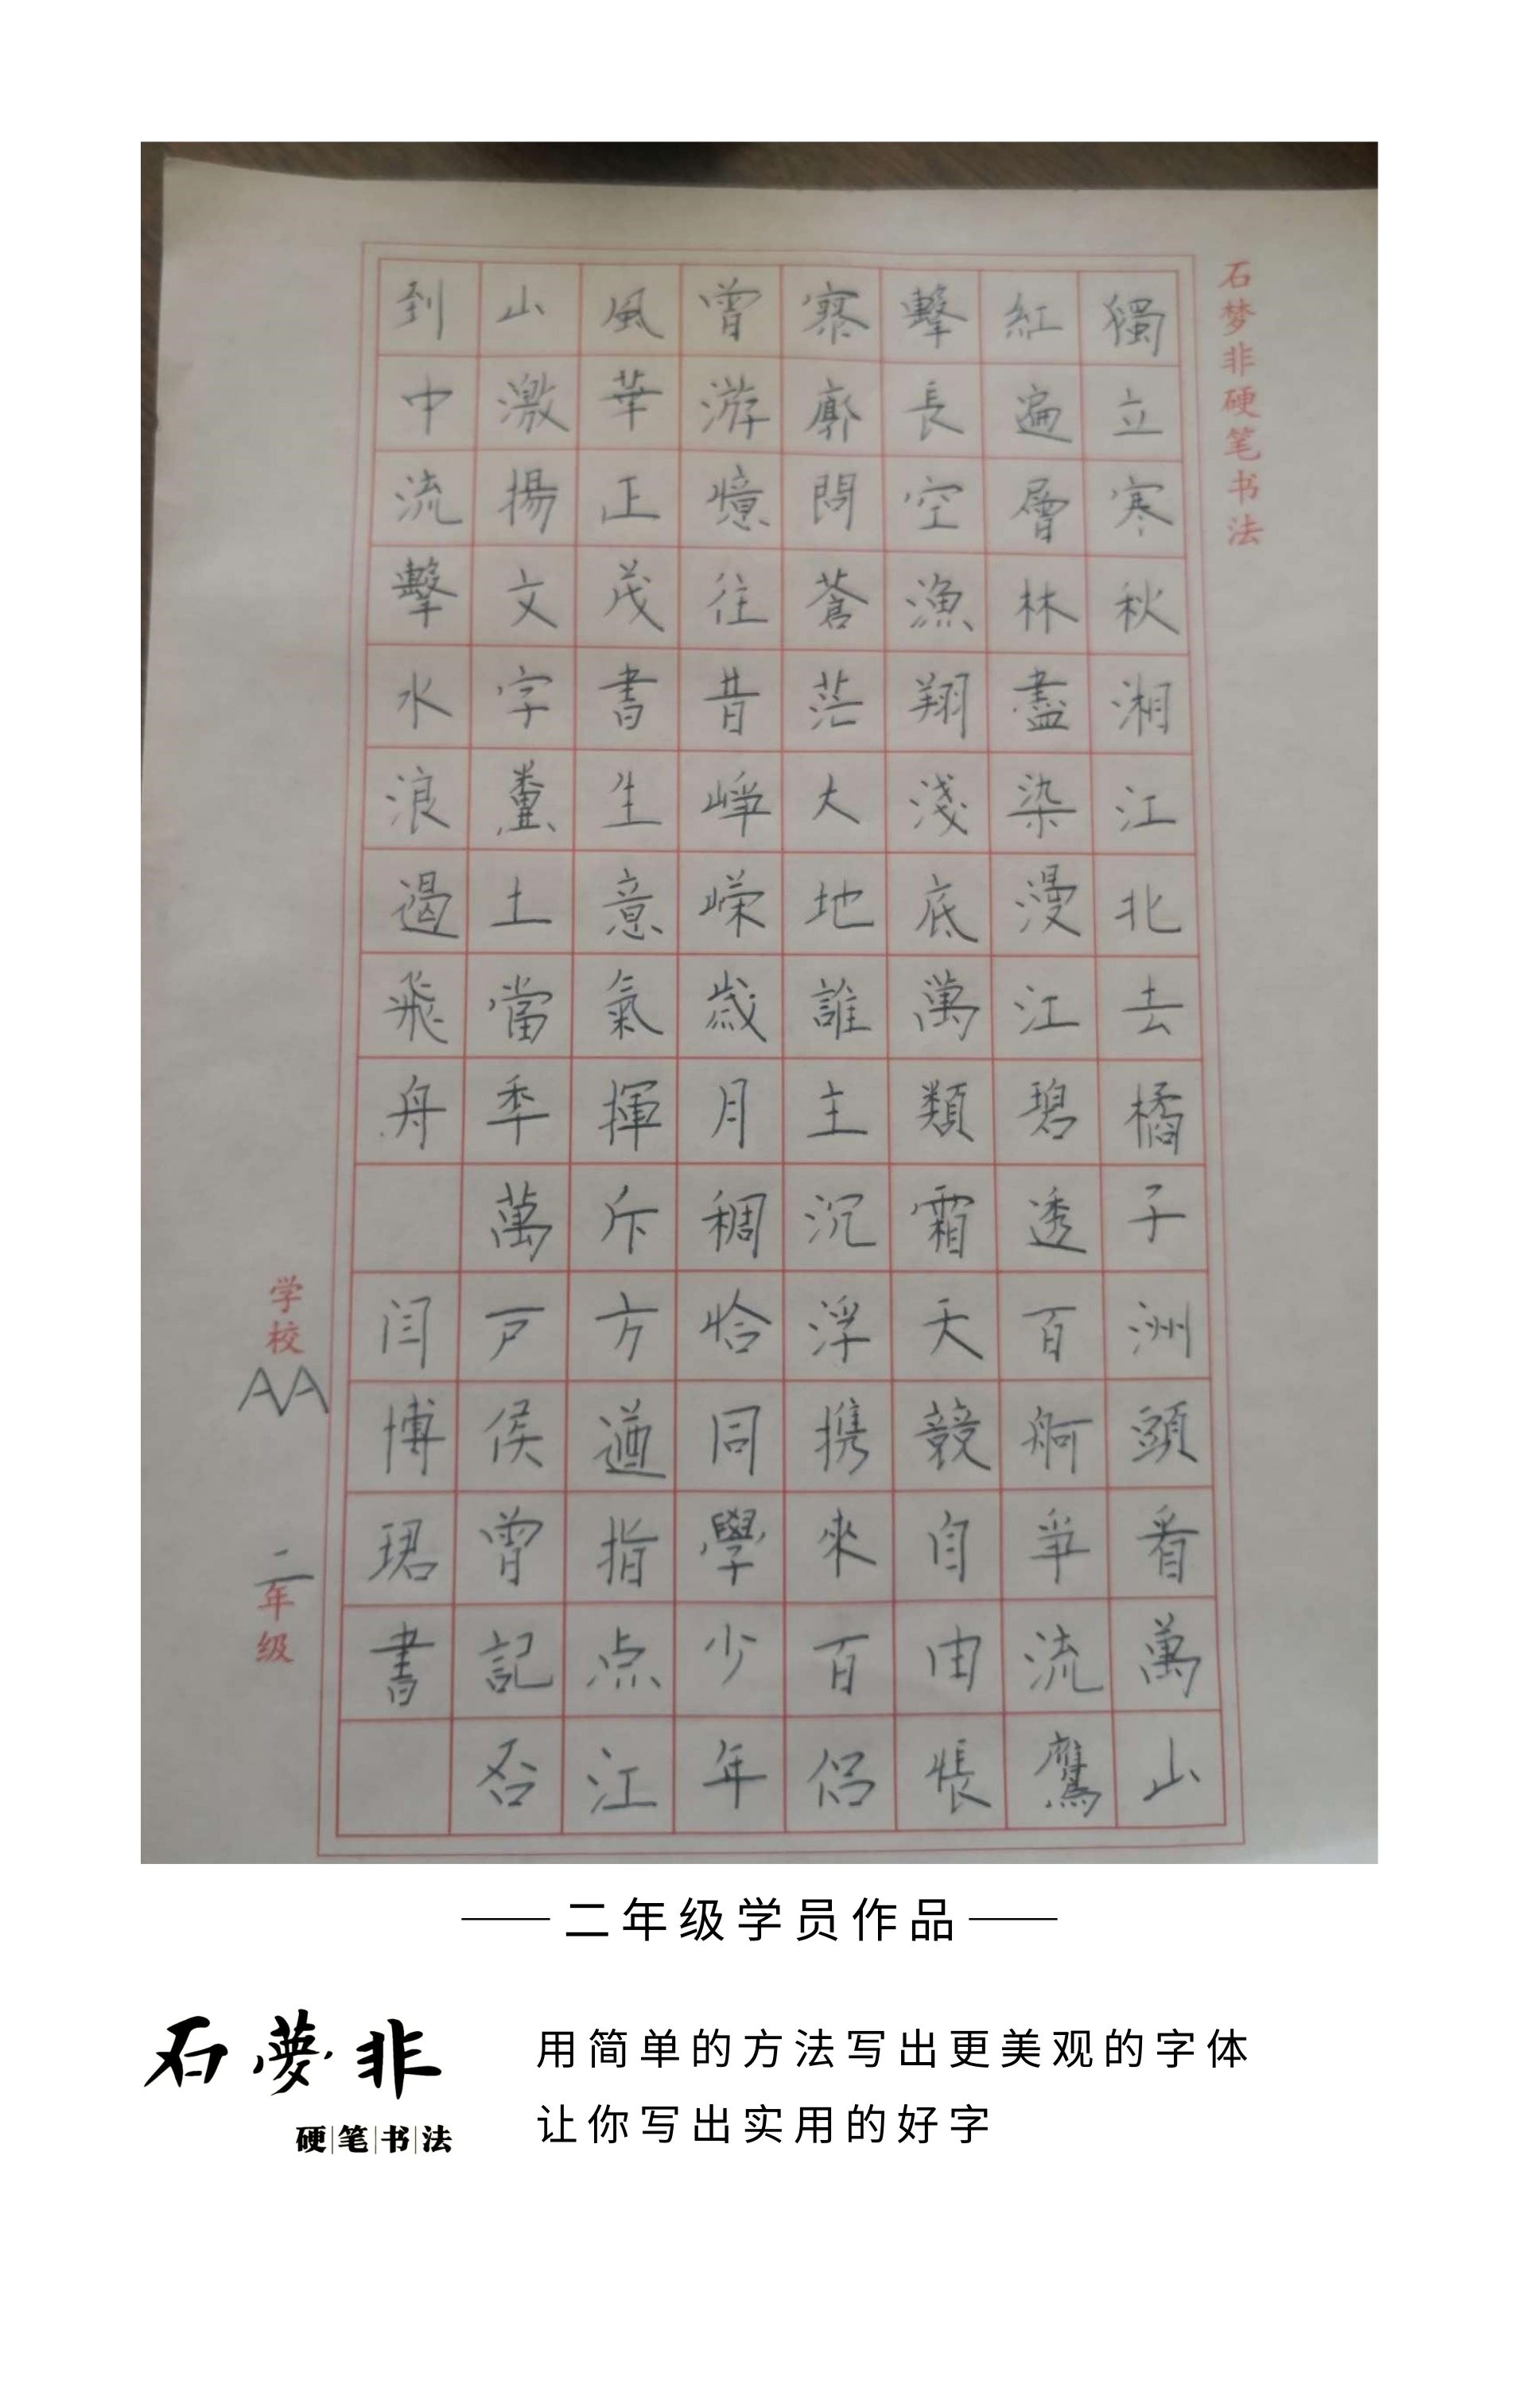 石梦非硬笔书法
獨立寒秋湘江北去橘子洲頭看萬山
紅遍層林盡染漫江碧透百舸爭流鷹
擊長空漁翔淺底萬類霜天競自由悵
寥廓問蒼茫大地誰主沉浮携來百侣
曾游憶往昔崢嶸歲月稠恰同學少年
風華正茂書生意氣揮斥方遒指点江
山激揚文字糞土當年萬戶侯曾記否
到中流擊水浪遏飛舟
闫博珺書
学校AA
二年级
二年级学员作品
石夢非
硬笔书法
用简单的方法写出更美观的字体
让你写出实用的好字